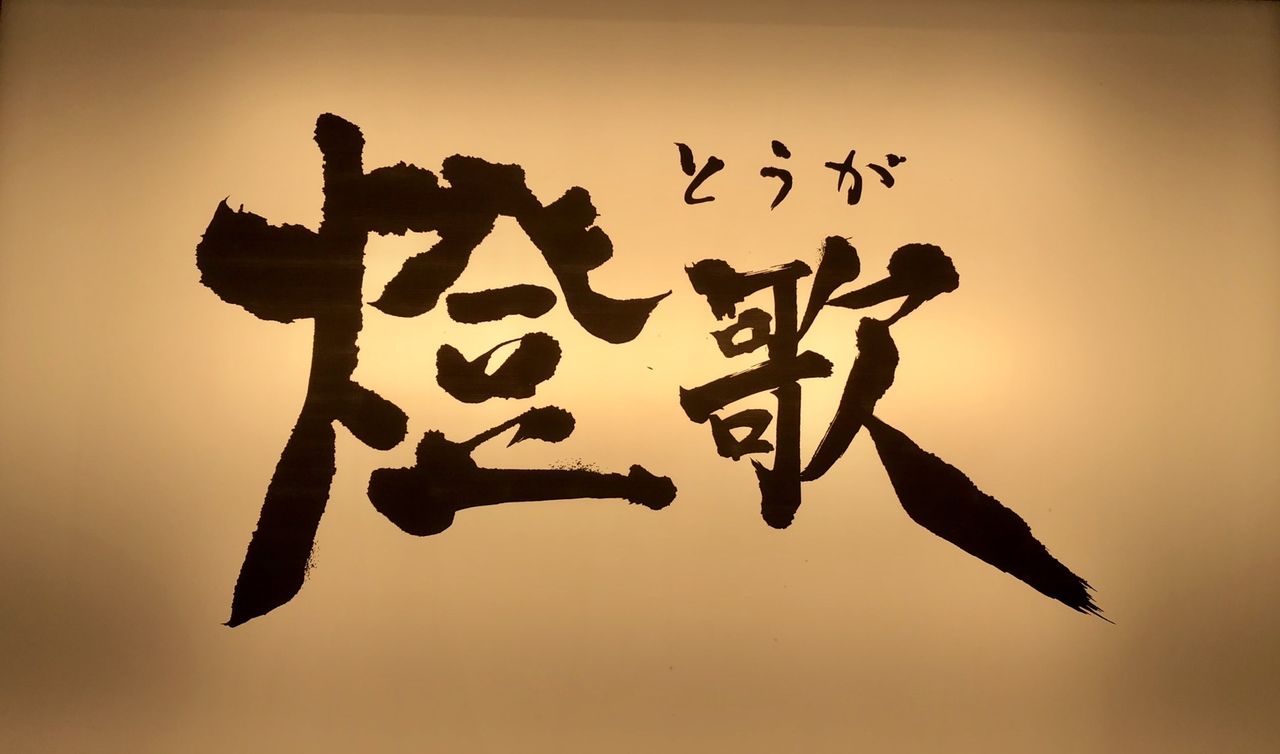 とうが
燈歌